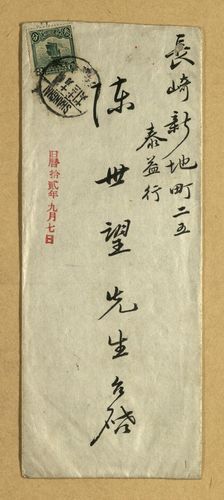 長崎新地町二五
泰益行
陳世望先生台啓
旧暦拾貳年九月七日
SHANGHAI